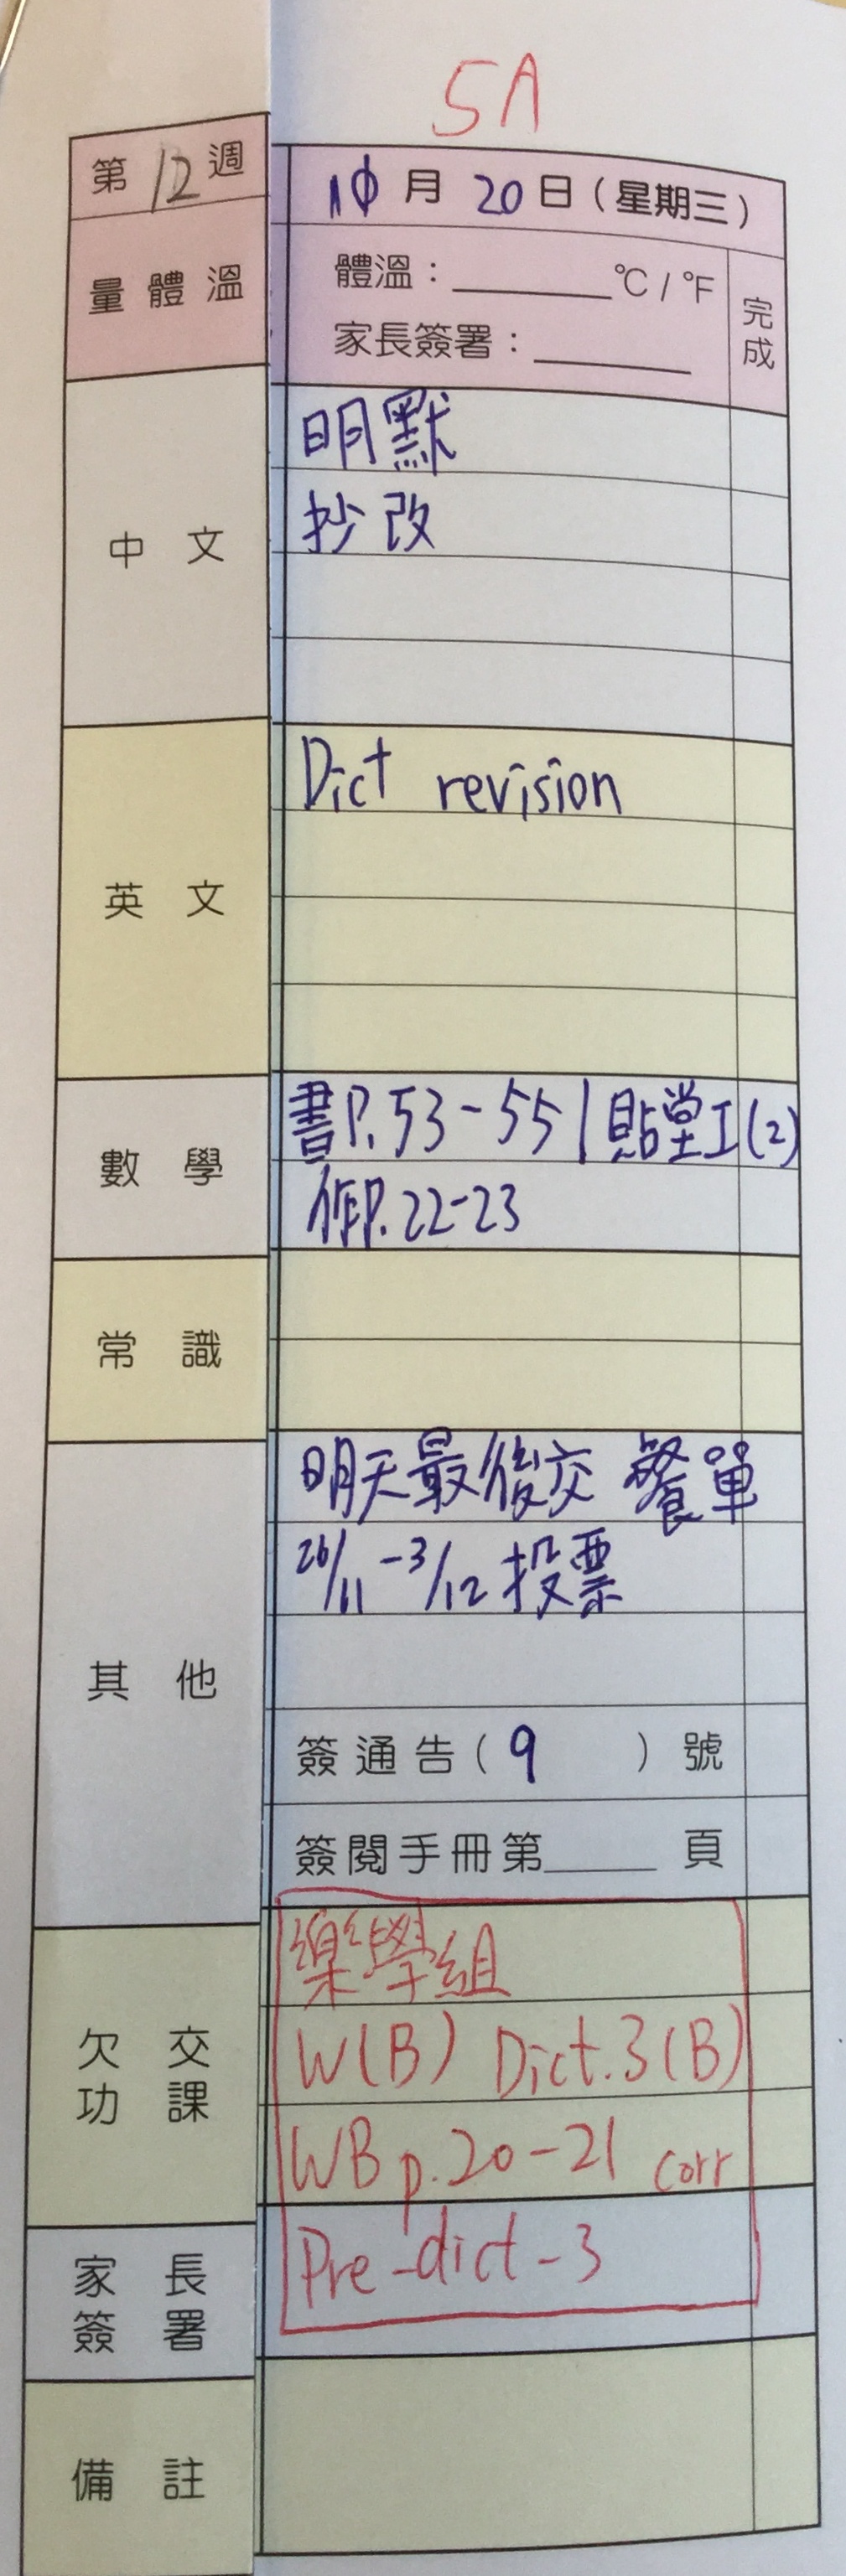 5A
第 12 週
10 月 20 日 (星期三)
量體溫
體溫：______ °C / °F
家長簽署：______
完成
中文
明默
抄改
英文
Dict revision
數學
書P.53-55 | 貼堂工(2)
作P.22-23
常識
其他
明天最後交 餐單
26/11-3/12 投票
簽通告 ( 9 ) 號
簽閱手冊第____頁
欠交功課
樂學組
W(B) Dict.3(B)
WB p.20-21 corr
Pre-dict-3
家長簽署
備註